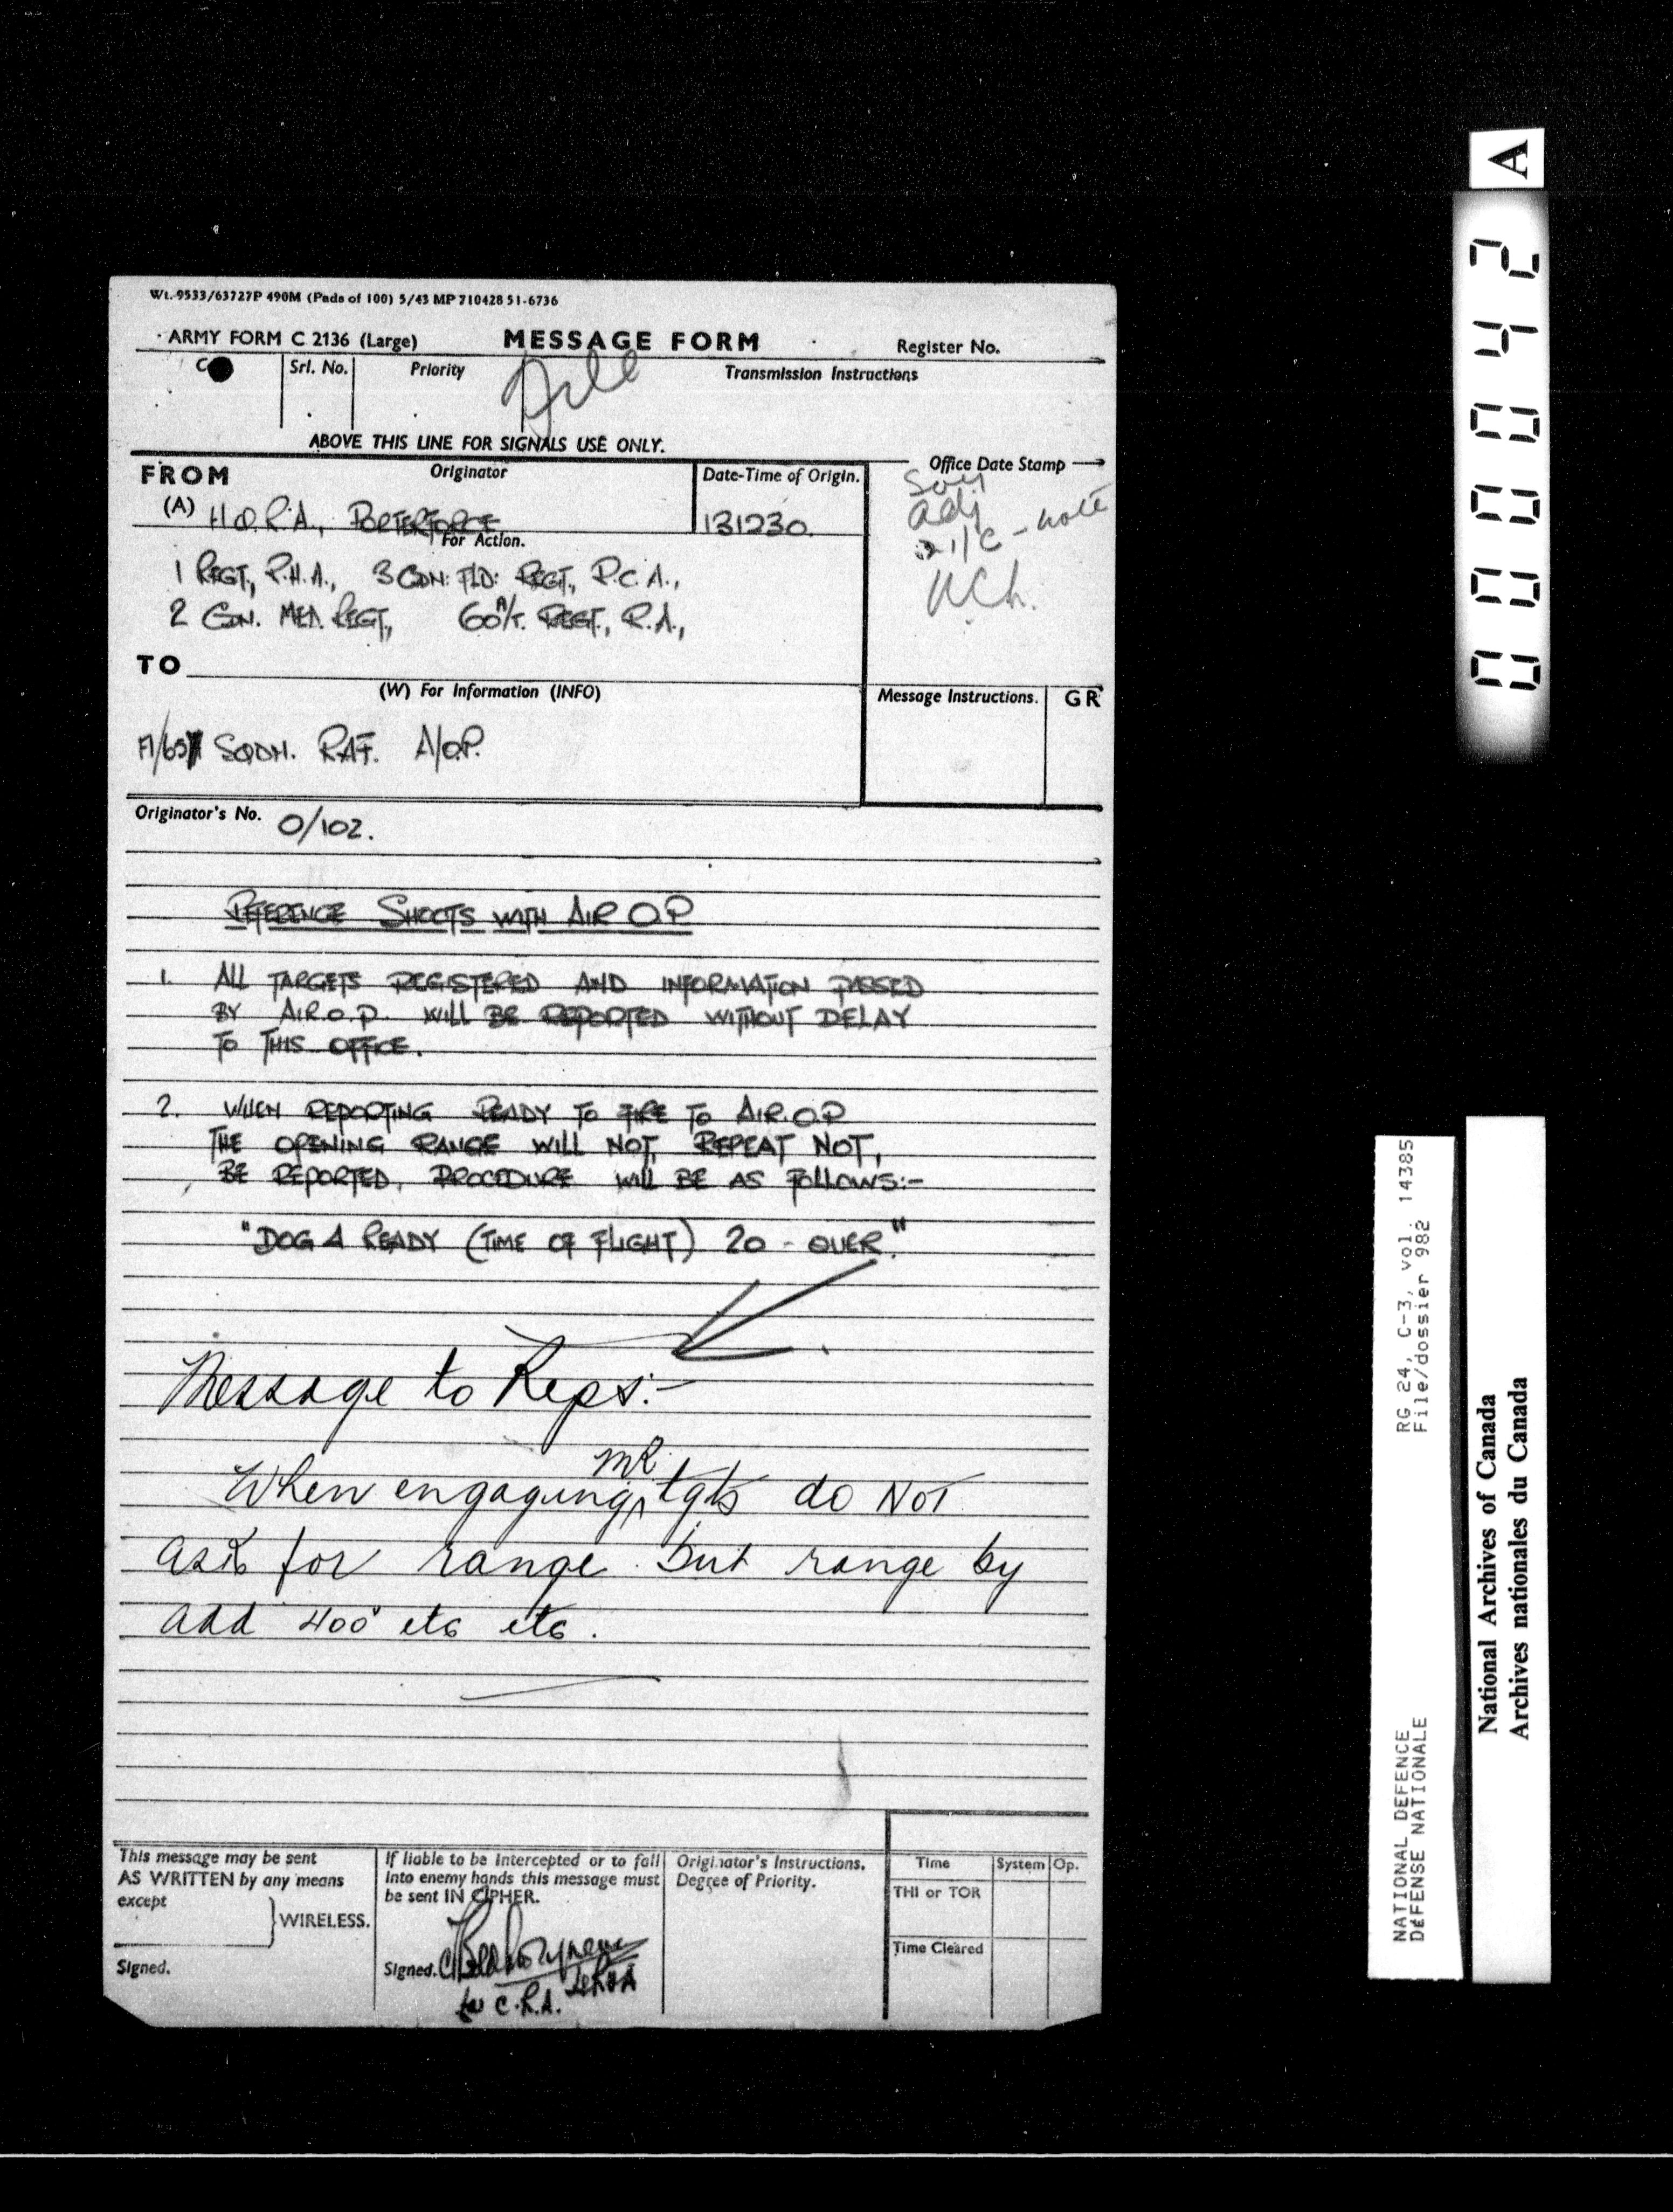 Wt. 9533/63727P 490M (Pads of 100) 5/43 MP 710428 51-6736
ARMY FORM C 2136 (Large) MESSAGE FORM Register No.
Srl. No. Priority Transmission Instructions
File
ABOVE THIS LINE FOR SIGNALS USE ONLY.
FROM Originator Date-Time of Origin. Office Date Stamp
(A) H.Q.R.A., PORTERFORCE, 131230.
adj
2 i/c - note
For Action.
1 REGT., R.H.A., 3 CDN: FLD: REGT., R.C.A.,
2 CDN. MED. REGT., 60 A/T. REGT., R.A.,
TO
(W) For Information (INFO) Message Instructions. GR
SQDN. R.A.F. A/O.P.
Originator's No. O/102.
REFERENCE SHOOTS WITH AIR O.P
1. ALL TARGETS REGISTERED AND INFORMATION PASSED
BY AIR.O.P. WILL BE REPORTED WITHOUT DELAY
TO THIS OFFICE.
2. WHEN REPORTING READY TO FIRE TO AIR.O.P
THE OPENING RANGE WILL NOT, REPEAT NOT,
BE REPORTED. PROCEDURE WILL BE AS FOLLOWS:-
"DOG 4 READY (TIME OF FLIGHT) 20 - OVER."
Message to Reps:-
When engaging MR tgts do NOT
ask for range but range by
add 400 etc etc.
This message may be sent
AS WRITTEN by any means
except
WIRELESS.
Signed.
If liable to be intercepted or to fall
into enemy hands this message must
be sent IN CIPHER.
Signed.
for C.R.A.
Originator's Instructions.
Degree of Priority.
Time System Op.
THI or TOR
Time Cleared
000042 A
RG 24, C-3, vol. 14385
File/dossier 982
NATIONAL DEFENCE
DéFENSE NATIONALE
National Archives of Canada
Archives nationales du Canada